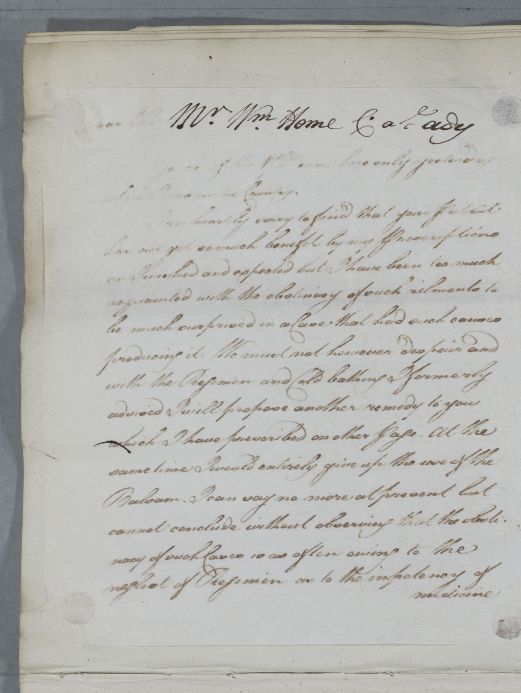 Mr. Wm. Home C: a Lady
yours of the came here only yesterday
in the Country.
heartily sorry to find that your Patient
has not got so much benefit by my Prescriptions
as I wished and expected but I have been too much
acquainted with the obstinacy of such ailments to
be much surprised in a Case that had such causes
producing it. We must not however despair and
with the Regimen and Cold bathing I formerly
advised I will propose another remedy to you
which I have prescribed on other Page. At the
same time I would entirely give up the use of the
Balsam. I can say no more at present but
cannot conclude without observing that the obsti-
nacy of such Cases is as often owing to the
neglect of Regimen as to the impotency of
medicine